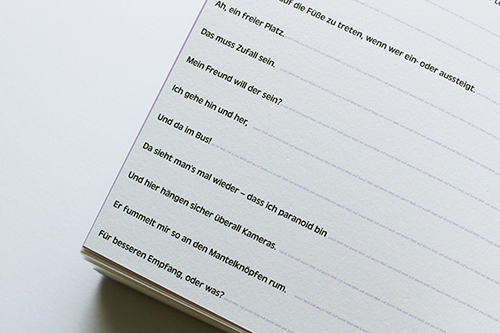 auf die Füße zu treten, wenn wer ein- oder aussteigt.
Ah, ein freier Platz.
Das muss Zufall sein.
Mein Freund will der sein?
Ich gehe hin und her,
Und da im Bus!
Da sieht man's mal wieder – dass ich paranoid bin
Und hier hängen sicher überall Kameras.
Er fummelt mir so an den Mantelknöpfen rum.
Für besseren Empfang, oder was?